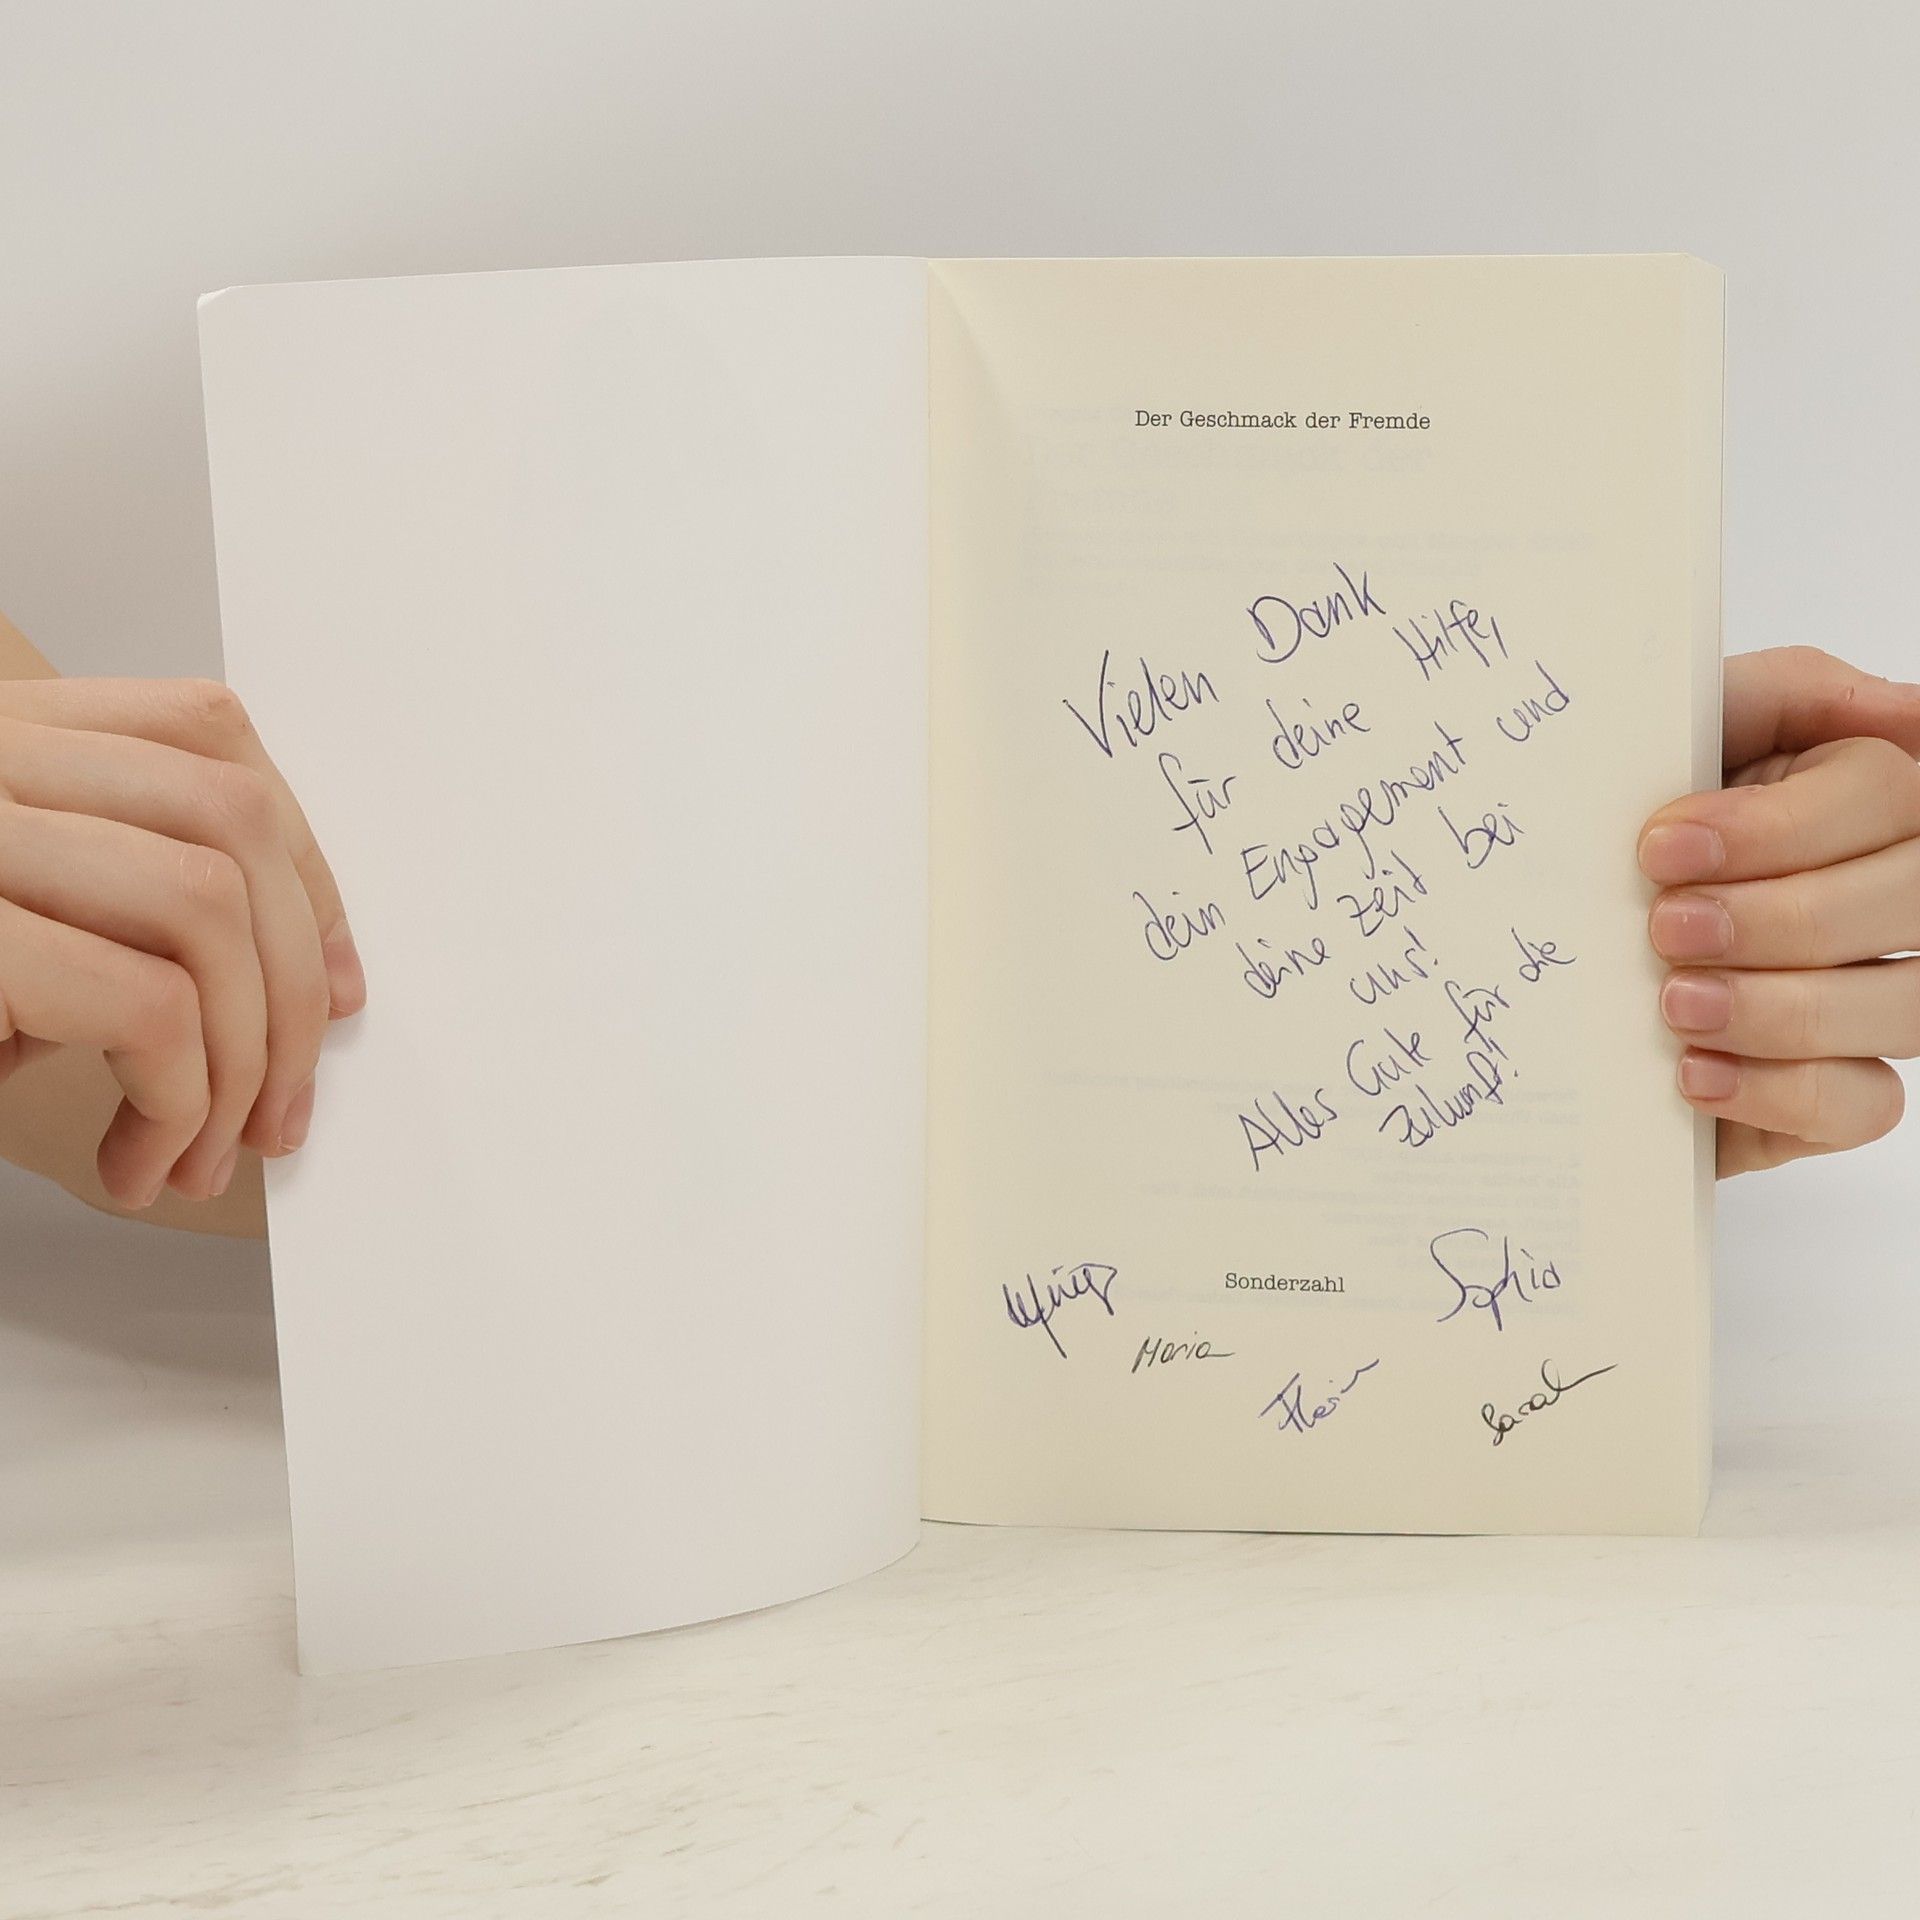 Der Geschmack der Fremde
Vielen Dank
für deine Hilfe,
dein Engagement und
deine Zeit bei
uns!
Alles Gute für die
Zukunft!
Sonderzahl
Sophia
Maria
Florian
Sarah